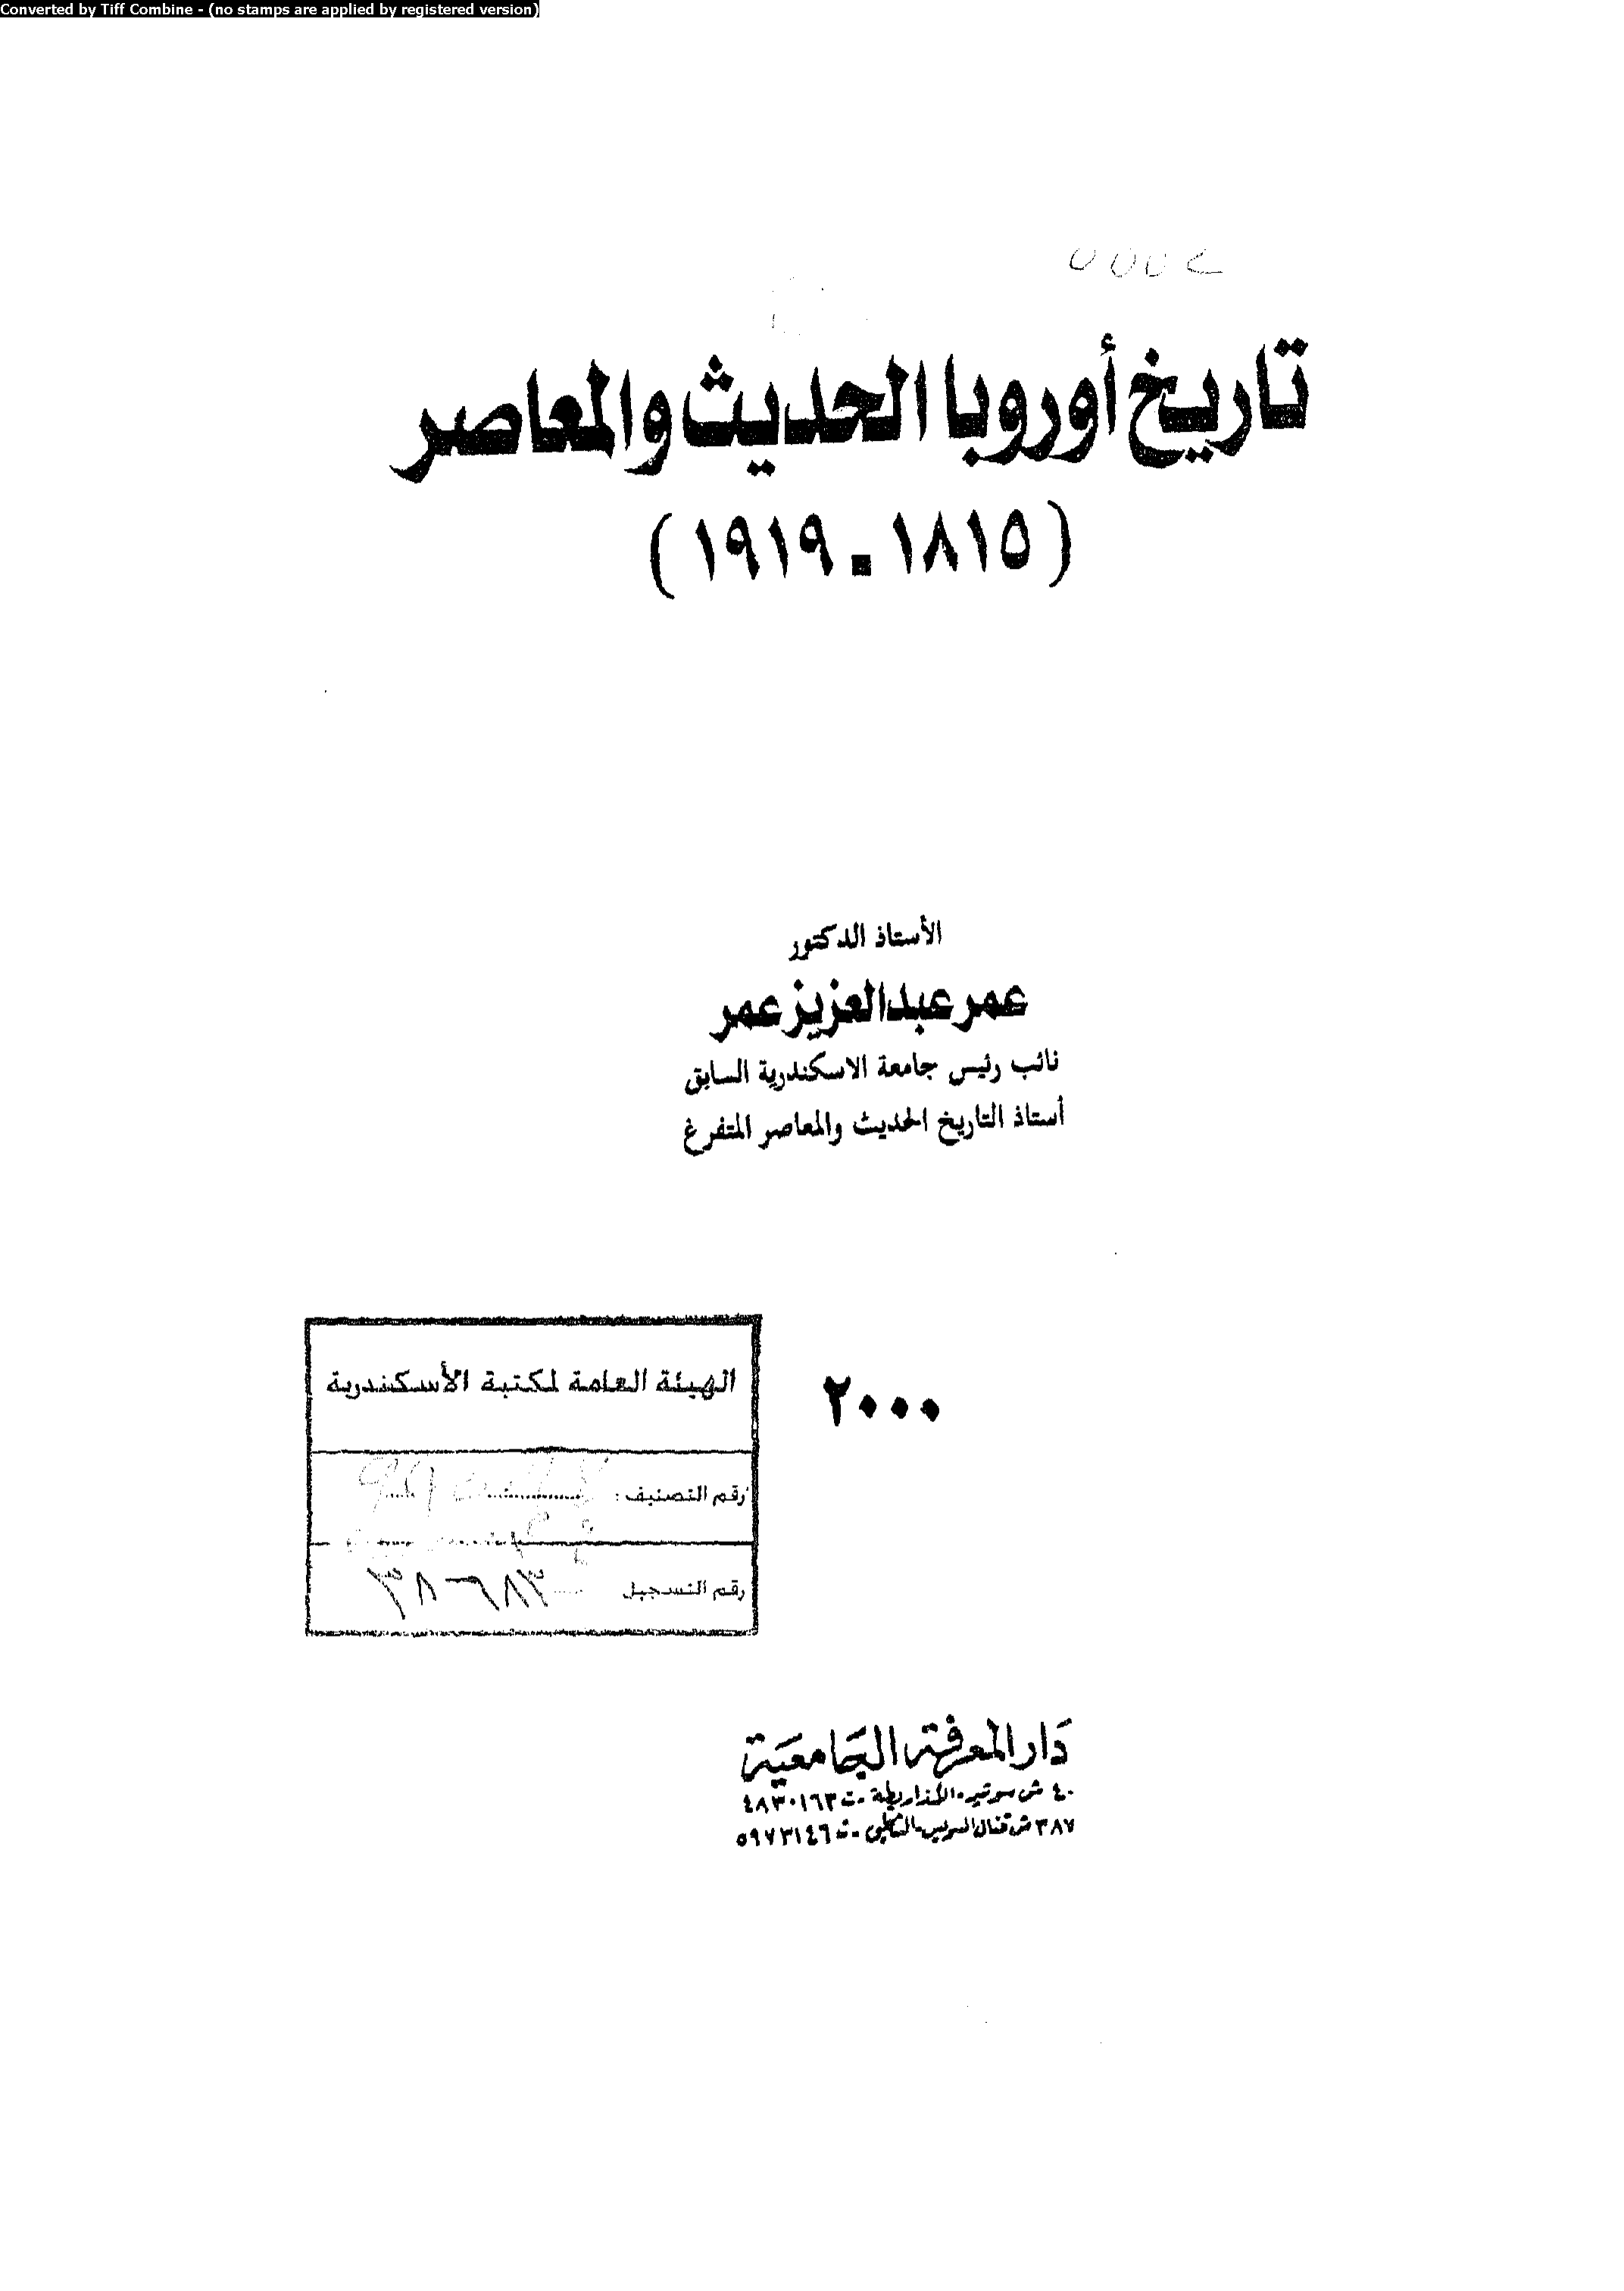 Converted by Tiff Combine - (no stamps are applied by registered version)
تاريخ أوروبا الحديث والمعاصر
(١٨١٥ - ١٩١٩)
الأستاذ الدكتور
عمر عبد العزيز عمر
نائب رئيس جامعة الاسكندرية السابق
أستاذ التاريخ الحديث والمعاصر المتفرغ
٢٠٠٠
الهيئة العامة لمكتبة الأسكندرية
رقم التصنيف :
رقم التسجيل ٣٨٦٨٣
دَار المعرفة الجَامعيَة
٤٠ ش سوتير - الأزاريطة - ت ٤٨٣٠١٦٣
٣٨٧ ش قنال السويس - الشاطبي - ت ٥٩٧٣١٤٦